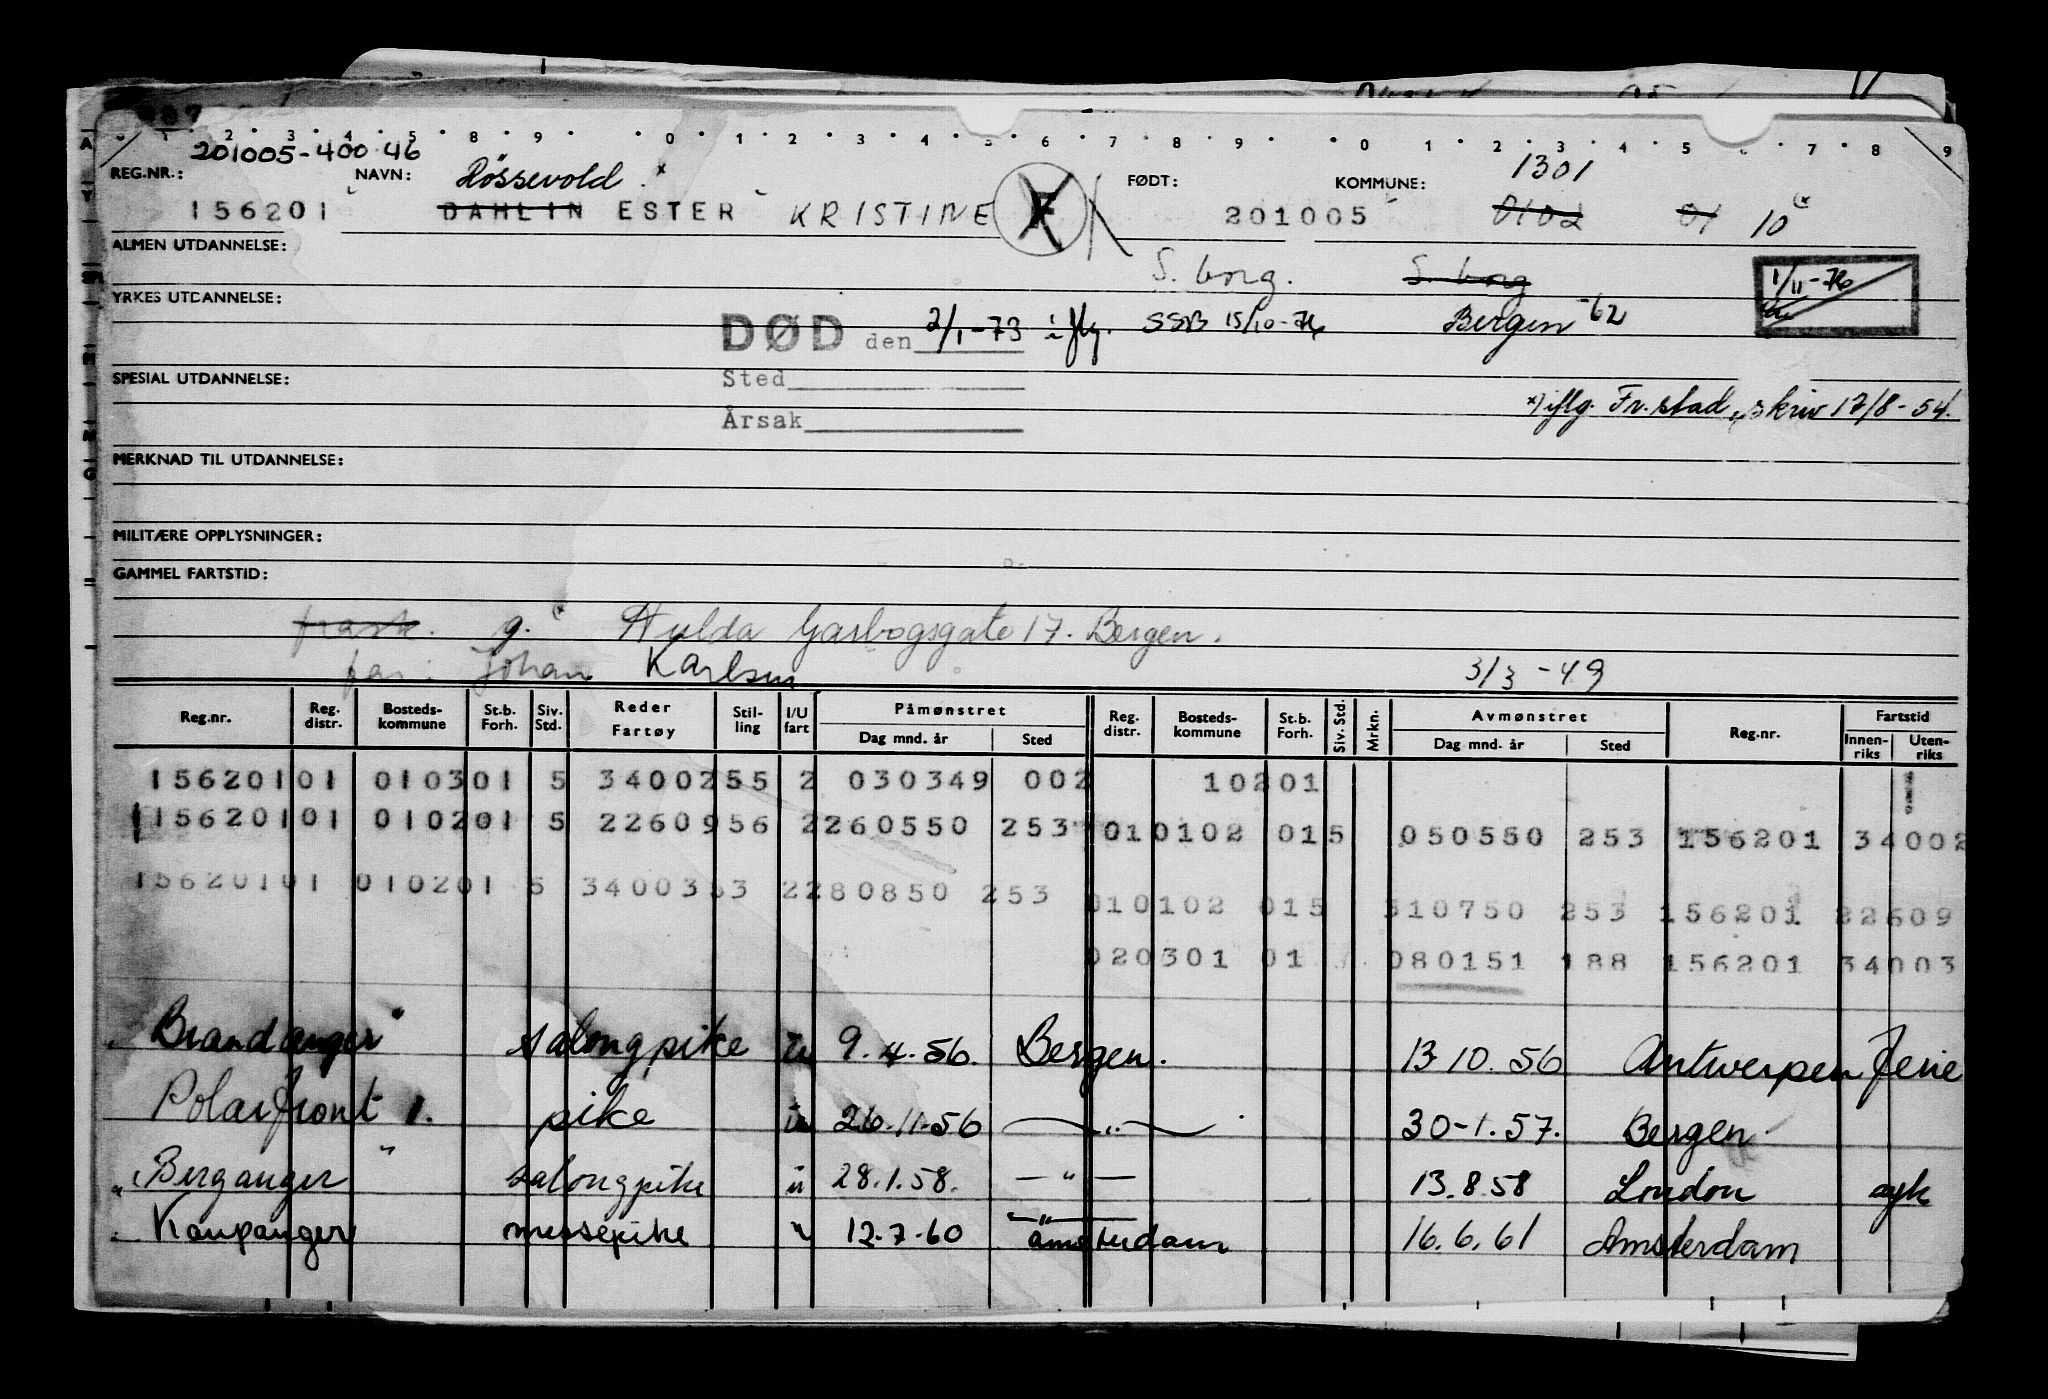 201005-400 46
REG.NR.: NAVN: Røssevold * FØDT: KOMMUNE: 1301
156201 DAHLIN ESTER KRISTINE 201005 0102 01 10
ALMEN UTDANNELSE:
S. borg. S. borg
1/11-76
YRKES UTDANNELSE:
DØD den 2/1-73 iflg. SSB 15/10-76 Bergen -62
SPESIAL UTDANNELSE: Sted
*) iflg. Fr.stad, skriv 17/8-54.
Årsak
MERKNAD TIL UTDANNELSE:
MILITÆRE OPPLYSNINGER:
GAMMEL FARTSTID:
frask. g. * Hulda Garborgsgate 17. Bergen.
far: Johan Karlsen 3/3-49
Reg.nr. Reg. distr. Bosteds-kommune St.b. Forh. Siv. Std. Reder Fartøy Stil-ling I/U fart Påmønstret Dag mnd. år Sted Reg. distr. Bosteds-kommune St.b. Forh. Siv. Std. Mrkn. Avmønstret Dag mnd. år Sted Reg.nr. Fartstid Innen-riks Uten-riks
156201 01 0103 01 5 34002 55 2 030349 002 10201
156201 01 0102 01 5 22609 56 2 260550 253 01 0102 01 5 050550 253 156201 34002
156201 01 0102 01 5 34003 53 2 280850 253 01 0102 01 5 310750 253 156201 22609
02 0301 01 080151 188 156201 34003
Brandanger salongpike u 9.4.56. Bergen. 13 10.56 Antwerpen ferie
Polarfront 1. pike u 26.11.56 — " — 30-1.57. Bergen
Berganger salongpike u 28.1.58. — " — 13.8.58 London syk
Kaupanger messepike " 12.7.60 Amsterdam 16.6.61 Amsterdam